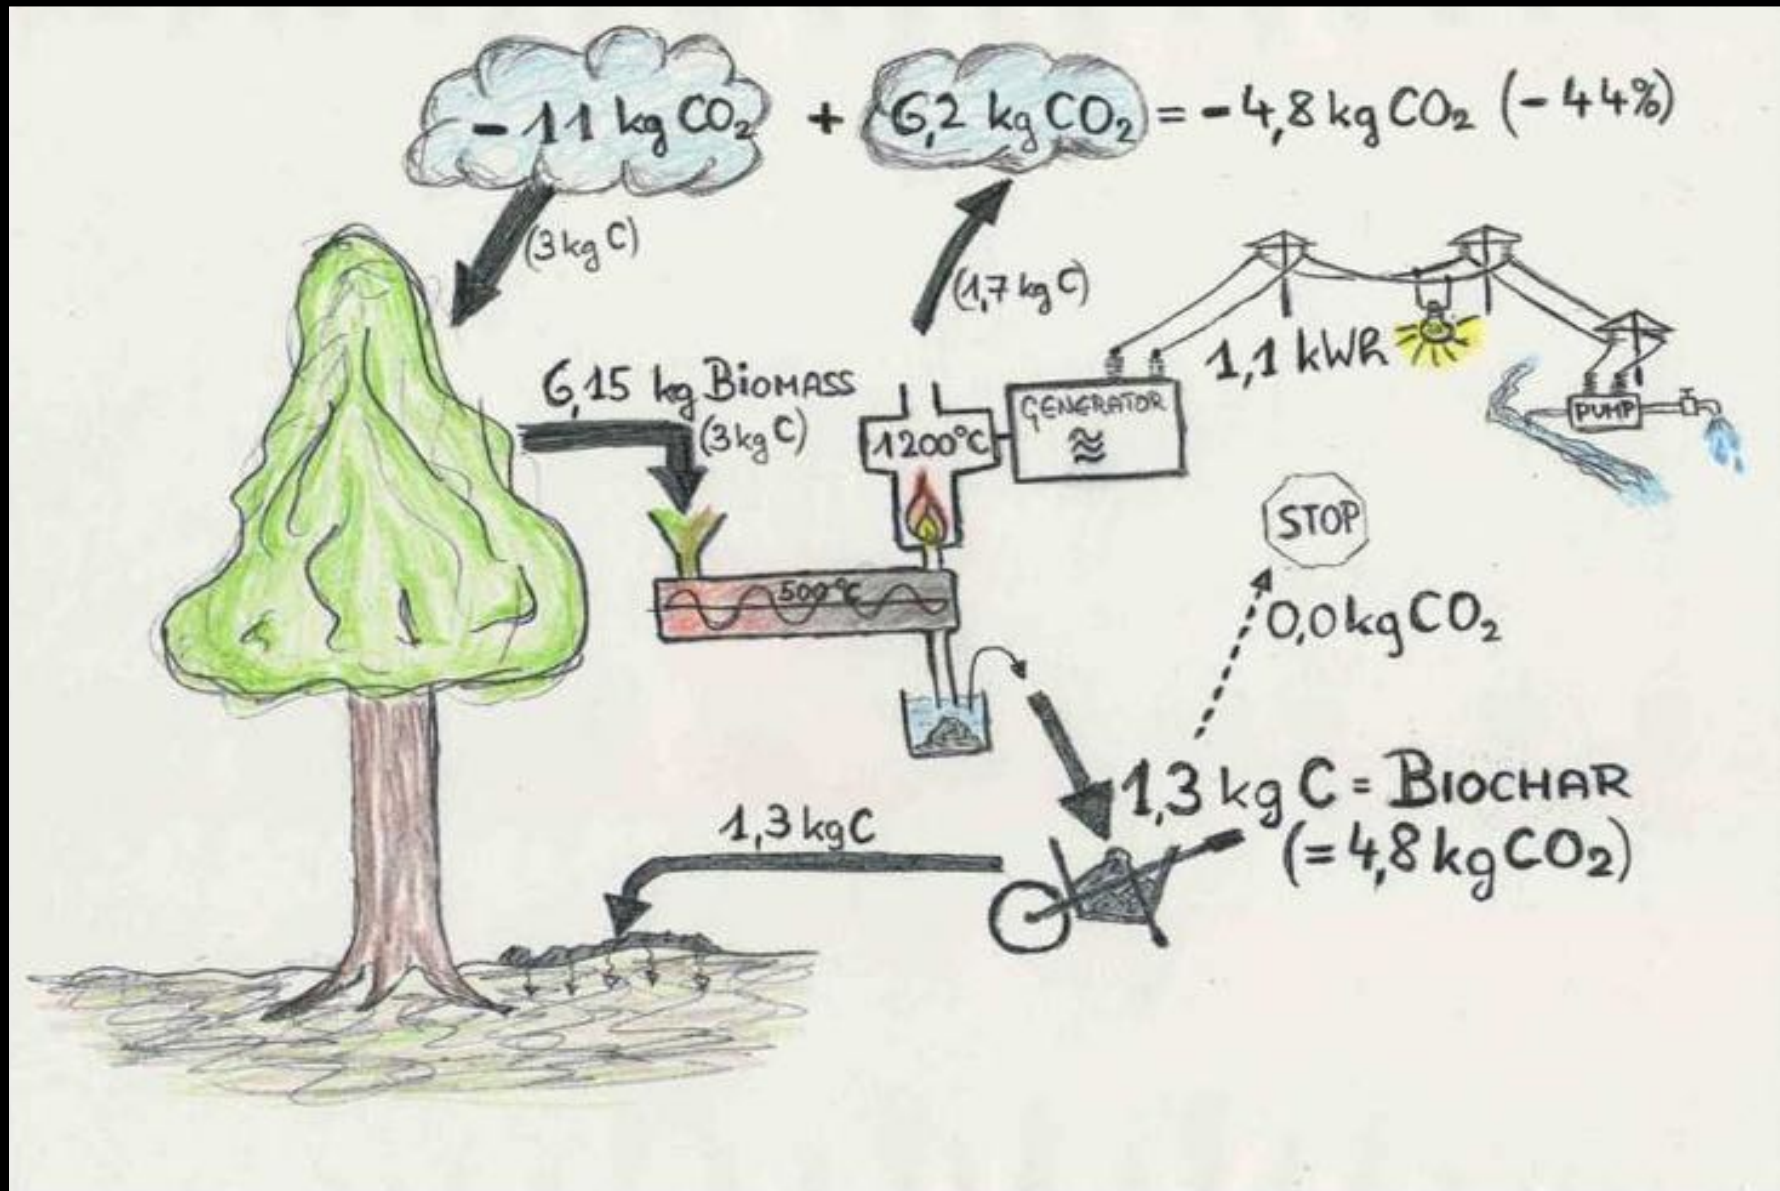 - 11 kg CO₂ + 6,2 kg CO₂ = - 4,8 kg CO₂ (- 44%)
(3 kg C)
(1,7 kg C)
6,15 kg BIOMASS
(3 kg C)
1200°C
GENERATOR
≈
1,1 kWh
PUMP
500°C
STOP
0,0 kg CO₂
1,3 kg C = BIOCHAR
(= 4,8 kg CO₂)
1,3 kg C